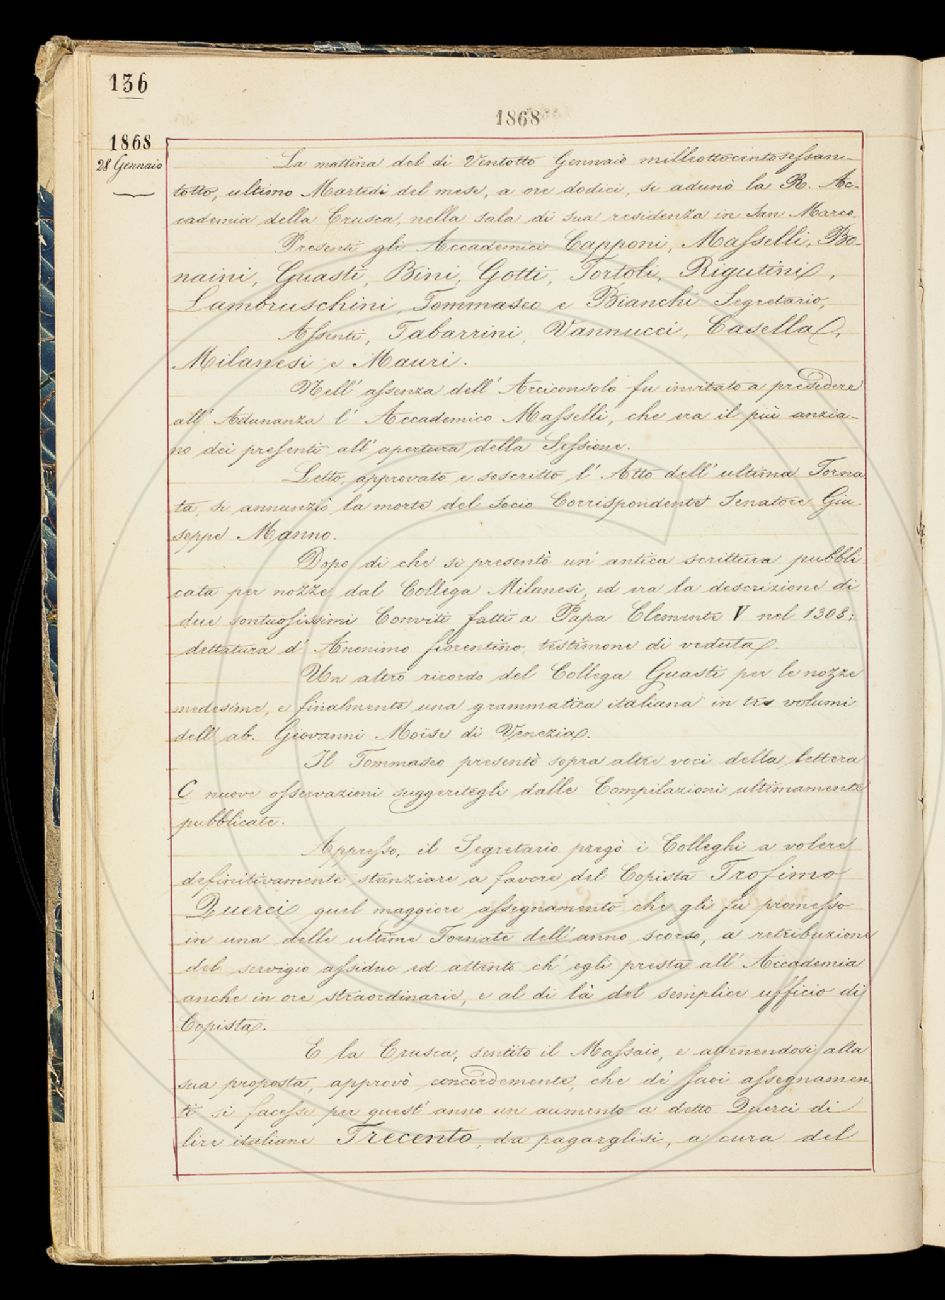 136
1868
1868
28 Gennaio
La mattina del dì Ventotto Gennaio milleottocentosessan-
totto, ultimo Martedì del mese, a ore dodici, si adunò la R. Ac-
cademia della Crusca nella sala di sua residenza in San Marco.
Presenti gli Accademici Capponi, Masselli, Bo-
naini, Guasti, Bini, Gotti, Tortoli, Rigutini,
Lambruschini, Tommaseo e Bianchi Segretario,
Assenti, Tabarrini, Vannucci, Casella,
Milanesi e Mauri.
Nell' assenza dell' Arciconsolo fu invitato a presedere
all' Adunanza l' Accademico Masselli, che era il più anzia-
no dei presenti all' apertura della Sessione.
Letto, approvato e soscritto l' Atto dell' ultima Torna
ta, si annunziò la morte del Socio Corrispondente Senatore Giu
seppe Manno.
Dopo di che si presentò un' antica scrittura pubbli
cata per nozze dal Collega Milanesi, ed era la descrizione di
due sontuosissimi Conviti fatti a Papa Clemente V nel 1308;
dettatura d' Anonimo fiorentino, testimone di veduta.
Un altro ricordo del Collega Guasti per le nozze
medesime, e finalmente una grammatica italiana in tre volumi
dell' ab. Giovanni Moise di Venezia.
Il Tommaseo presentò sopra altre voci della lettera
C nuove osservazioni suggeritegli dalle Compilazioni ultimamente
pubblicate.
Appresso, il Segretario pregò i Colleghi a volere
definitivamente stanziare a favore del Copista Trofimo
Querci quel maggiore assegnamento che gli fu promesso
in una delle ultime Tornate dell' anno scorso, a retribuzione
del servigio assiduo ed attento ch' egli presta all' Accademia
anche in ore straordinarie, e al di là del semplice ufficio di
Copista.
E la Crusca, sentito il Massaio, e attenendosi alla
sua proposta, approvò concordemente, che de' suoi assegnamen
ti si facesse per quest' anno un aumento a detto Querci di
lire italiane Trecento, da pagarglisi, a cura del